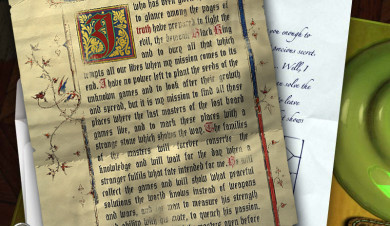 who has been
to glance among the pages of
truth have prepared to fight the
evil, the heinous Black King
and to burn all that which
tempts all our lives when my mission comes to its
end. I have no power left to plant the seeds of the
unknown games and to look after their growth
and spread, but it is my mission to find all those
places where the last masters of the lost board
games live, and to mark these places with a
strange stone which shows the way. The families
of the masters will forever conserve the
knowledge and will wait for the day when a
stranger fulfils what fate intended for me. He will
collect the games and will show what peaceful
solutions the world knows instead of weapons
and wars, and use man to measure his strength
ability with his mate, to quench his passion.
masters even before
you enough to
precious secret.
Well, I
solve the
to leave
shows